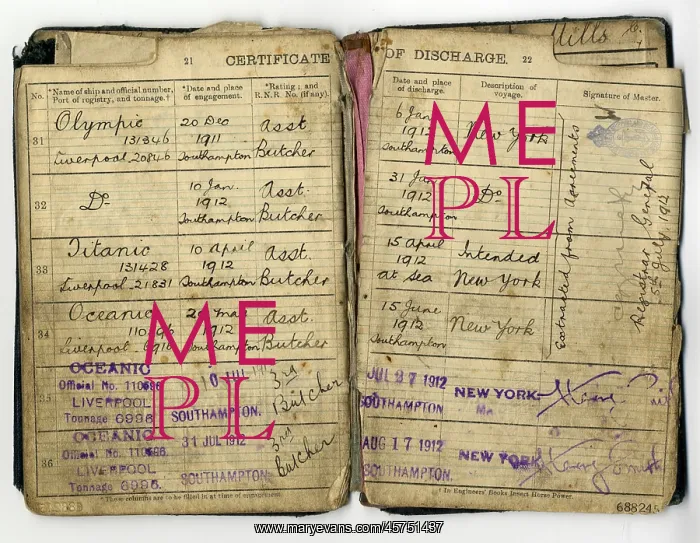 21 CERTIFICATE
No. *Name of ship and official number, Port of registry, and tonnage.† *Date and place of engagement. *Rating; and R.N.R. No. (if any).
31 Olympic 20 Dec Asst
131346 1911
Liverpool 20846 Southampton Butcher
32 Do 10 Jan. Asst.
1912
Southampton Butcher
33 Titanic 10 April Asst.
131428 1912
Liverpool 21831 Southampton Butcher
34 Oceanic Asst.
1912
Liverpool Southampton Butcher
35 OCEANIC
Official No. 110596 10 JUL 1912 3rd
LIVERPOOL Butcher
Tonnage 6996 SOUTHAMPTON.
36 OCEANIC
Official No. 110596 31 JUL 1912 3rd
LIVERPOOL Butcher
Tonnage 6996. SOUTHAMPTON.
*These columns are to be filled in at time of engagement.
Mills
OF DISCHARGE. 22
Date and place of discharge. Description of voyage. Signature of Master.
6 Jan
1912 New York
Southampton
31 Jan
1912 Do
Southampton
15 April Intended
1912
at Sea New York
15 June
1912 New York
Southampton
Extracted from Agreements
Registrar General
5th July 1912
JUL 27 1912 NEW YORK
SOUTHAMPTON
AUG 17 1912 NEW YORK
SOUTHAMPTON.
† In Engineers' Books Insert Horse Power.
ME
PL
ME
PL
www.maryevans.com/45751437